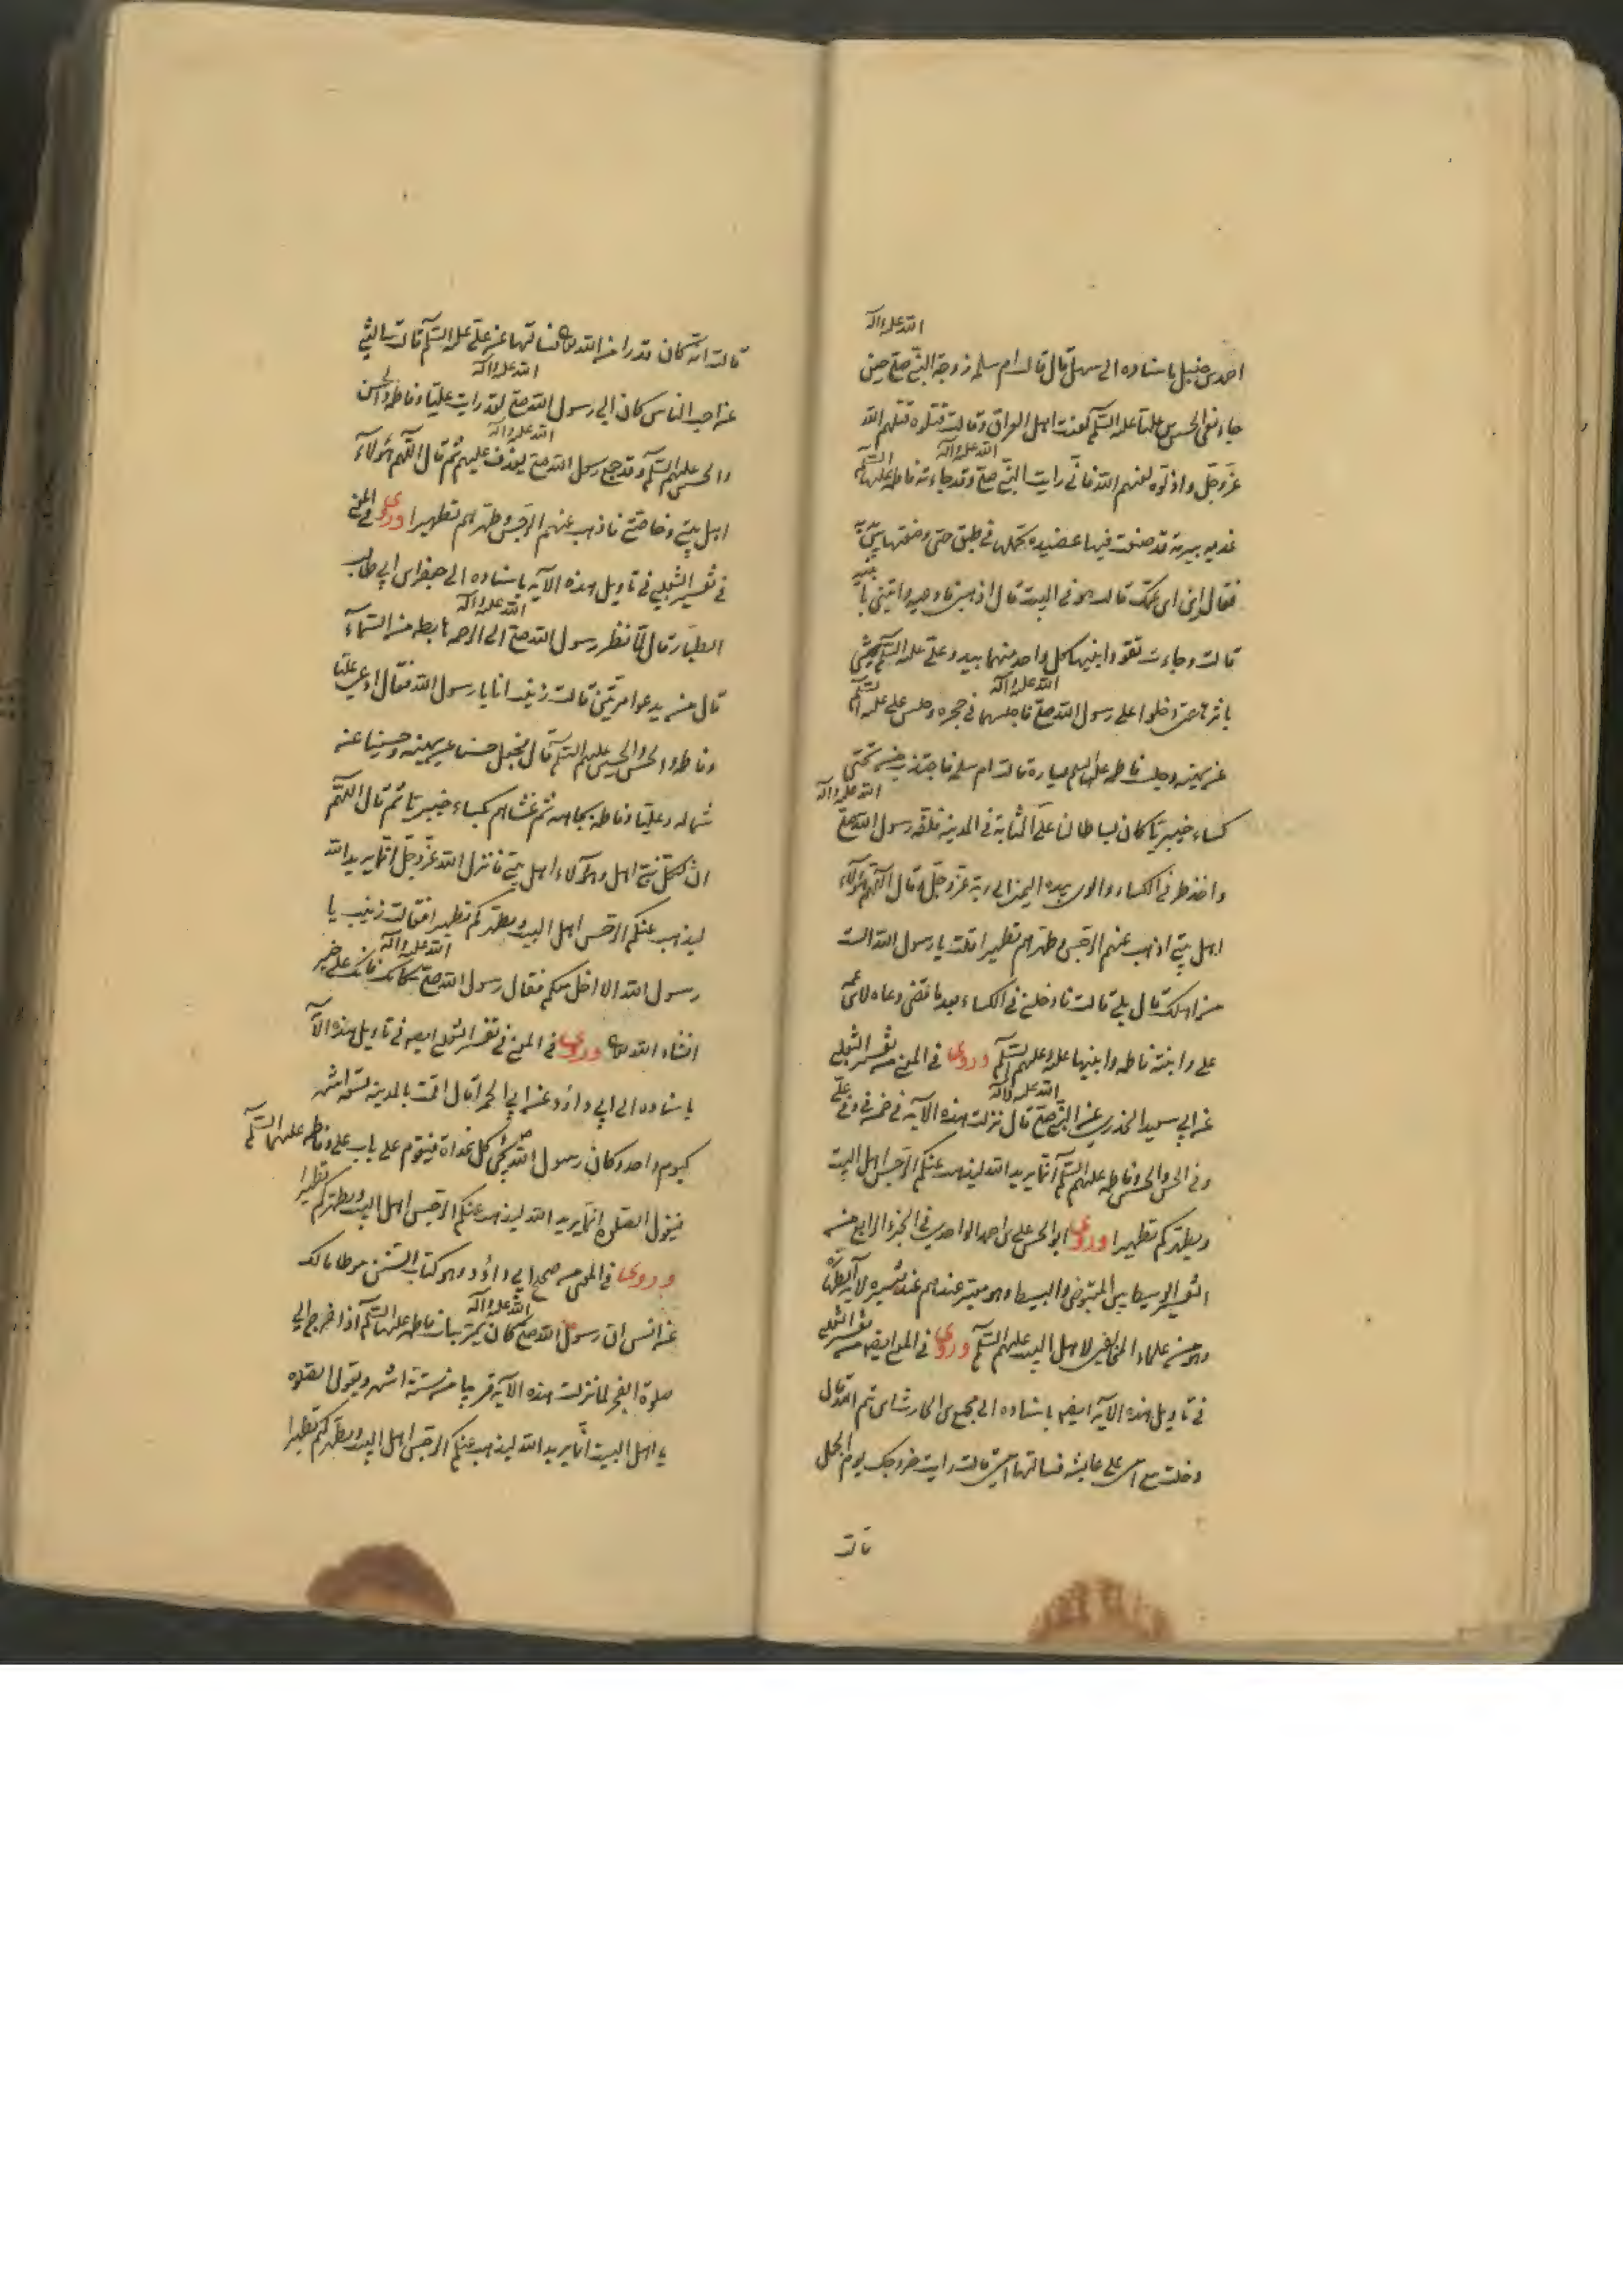 احمد بن حنبل باسناده الى سهل قال قالت ام سلمه زوجة النبى صلى الله عليه وآله حين
جاء نعى الحسين بن على عليه السلم لعنت اهل العراق وقالت قتلوه قتلهم الله
عز وجل واذلوه لعنهم الله فانى رايت النبى صلى الله عليه وآله وقد جاءته فاطمه عليها السلم
غديه ببرمة قد صنعت فيها عصيده تحملها فى طبق حتى وضعتها بين يديه
فقال لها اين ابن عمك قالت هو فى البيت قال اذهبى فادعيه واتينى بابنيه
قالت وجاءت تقود ابنيها كل واحد منهما بيد وعلى عليه السلم يمشى
باثرها حتى دخلوا على رسول الله صلى الله عليه وآله فاجلسهما فى حجره وجلس على عليه السلم
عن يمينه وجلست فاطمه عليها السلم يساره قالت ام سلمه فاجتذب من تحتى
كساء خيبريا كان بساطا لنا على المثابة فى المدينه فلفه رسول الله صلى الله عليه وآله
واخذ طرفى الكساء والوى بيده اليمنى الى ربه عز وجل وقال اللهم هؤلاء
اهل بيتى اذهب عنهم الرجس وطهرهم تطهيرا قلت يا رسول الله الست
من اهلك قال بلى قالت فادخلنى فى الكساء بعد ما قضى دعاءه لابن عمه
على وابنته فاطمه وابنيها عليه وعليهم السلم وروى فى المعنى من تفسير الثعلبى
عن ابى سعيد الخدرى عن النبى صلى الله عليه وآله قال نزلت هذه الآيه فى خمسة فى وفى على
وفى الحسن والحسين وفاطمه عليهم السلم انما يريد الله ليذهب عنكم الرجس اهل البيت
ويطهركم تطهيرا وروى ابو الحسن على بن احمد الواحدى فى الجزء الرابع من
التفسير الوسيط بين المقبوض والبسيط وهو معتبر عندهم عند تفسيره لآية الطهارة
وهو من علماء المخالفين لاهل البيت عليهم السلم وروى فى المعنى ايضا من تفسير الثعلبى
فى تاويل هذه الآيه ايضا باسناده الى مجمع بن الحارث بن تيم الله قال
دخلت مع امى على عايشه فسالتها امى قالت رايت خروجك يوم الجمل
قالت
قالت انه كان قدرا من الله تعالى فسالتها عن على عليه السلم قالت سالتنى
عن احب الناس كان الى رسول الله صلى الله عليه وآله لقد رايت عليا وفاطمه والحسن
والحسين عليهم السلم وقد جمع رسول الله صلى الله عليه وآله يغدف عليهم ثم قال اللهم هؤلاء
اهل بيتى وخاصتى فاذهب عنهم الرجس وطهرهم تطهيرا وروى فى المعنى
فى تفسير الثعلبى فى تاويل هذه الآيه باسناده الى جعفر بن ابى طالب
الطيار قال لما نظر رسول الله صلى الله عليه وآله الى الرحمه هابطه من السماء
قال من يدعو مرتين قالت زينب انا يا رسول الله فقال ادعى عليا
وفاطمه والحسن والحسين عليهم السلم قال فجعل حسنا عن يمينه وحسينا عن
شماله وعليا وفاطمه تجاهه ثم غشاهم كساء خيبريا ثم قال اللهم
ان لكل نبى اهل وهؤلاء اهل بيتى فانزل الله عز وجل انما يريد الله
ليذهب عنكم الرجس اهل البيت ويطهركم تطهيرا فقالت زينب يا
رسول الله الا ادخل معكم فقال رسول الله صلى الله عليه وآله مكانك فانك على خير
انشاء الله تعالى وروى فى المعنى فى تفسير الثعلبى ايضا فى تاويل هذه الآيه
باسناده الى ابى داؤد عن ابى الحمراء قال اقمت بالمدينه تسعة اشهر
كيوم واحد وكان رسول الله يجئ كل غداة فيقوم على باب على وفاطمه عليهما السلم
فيقول الصلوة انما يريد الله ليذهب عنكم الرجس اهل البيت ويطهركم تطهيرا
وروى فى المعنى من صحيح ابى داؤد وهو كتاب السنن وموطا مالك
عن انس ان رسول الله صلى الله عليه وآله كان يمر بباب فاطمه عليها السلم اذا خرج الى
صلوة الفجر لما نزلت هذه الآيه قريبا من ستة اشهر ويقول الصلوة
يا اهل البيت انما يريد الله ليذهب عنكم الرجس اهل البيت ويطهركم تطهيرا